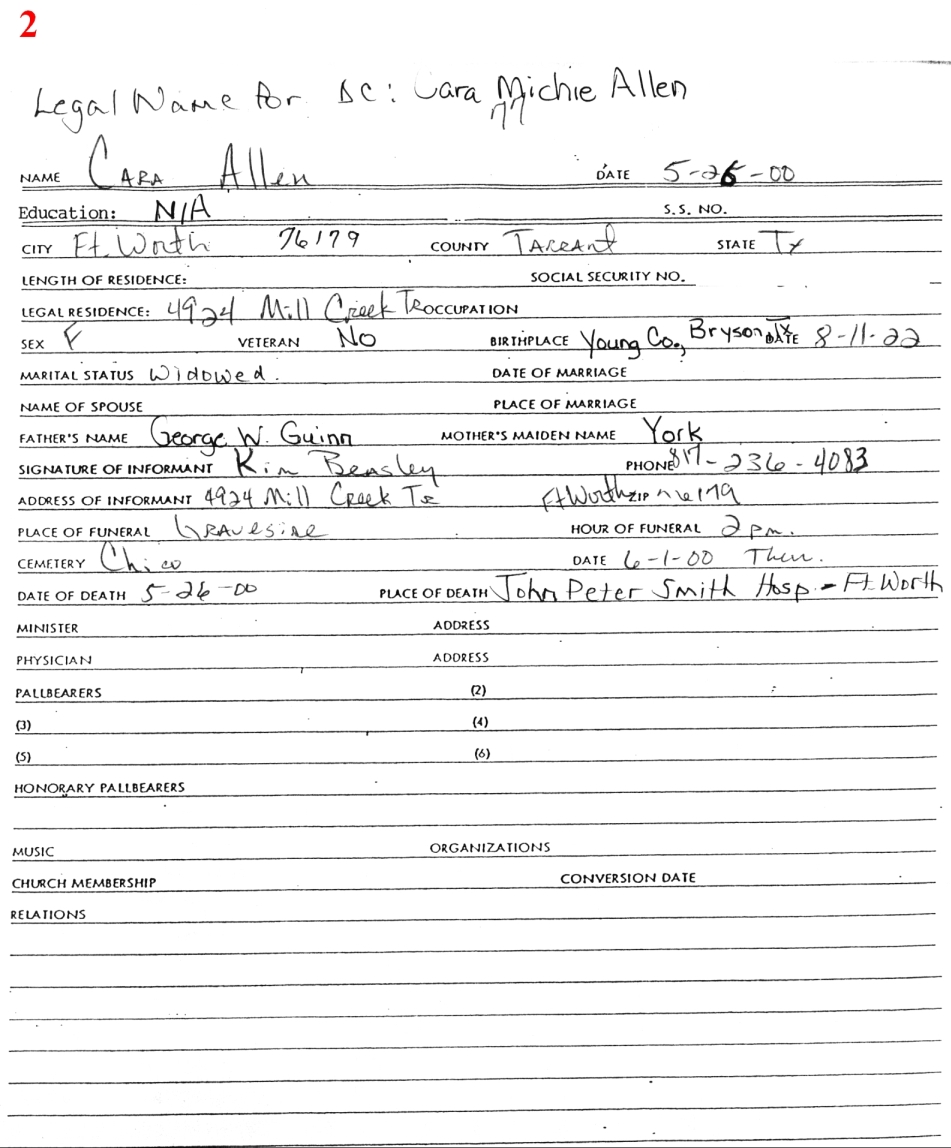 2
Legal Name for DC: Cara Michie Allen
NAME Cara Allen DATE 5-26-00
Education: N/A S.S. NO.
CITY Ft. Worth 76179 COUNTY Tarrant STATE Tx
LENGTH OF RESIDENCE: SOCIAL SECURITY NO.
LEGAL RESIDENCE: 4924 Mill Creek Tr OCCUPATION
SEX F VETERAN No BIRTHPLACE Young Co., Bryson, Tx DATE 8-11-22
MARITAL STATUS Widowed. DATE OF MARRIAGE
NAME OF SPOUSE PLACE OF MARRIAGE
FATHER'S NAME George W. Guinn MOTHER'S MAIDEN NAME York
SIGNATURE OF INFORMANT Kim Beasley PHONE 817-236-4083
ADDRESS OF INFORMANT 4924 Mill Creek Tr Ft Worth ZIP 76179
PLACE OF FUNERAL Graveside HOUR OF FUNERAL 2 pm.
CEMETERY Chico DATE 6-1-00 Thur.
DATE OF DEATH 5-26-00 PLACE OF DEATH John Peter Smith Hosp - Ft. Worth
MINISTER ADDRESS
PHYSICIAN ADDRESS
PALLBEARERS (2)
(3) (4)
(5) (6)
HONORARY PALLBEARERS
MUSIC ORGANIZATIONS
CHURCH MEMBERSHIP CONVERSION DATE
RELATIONS